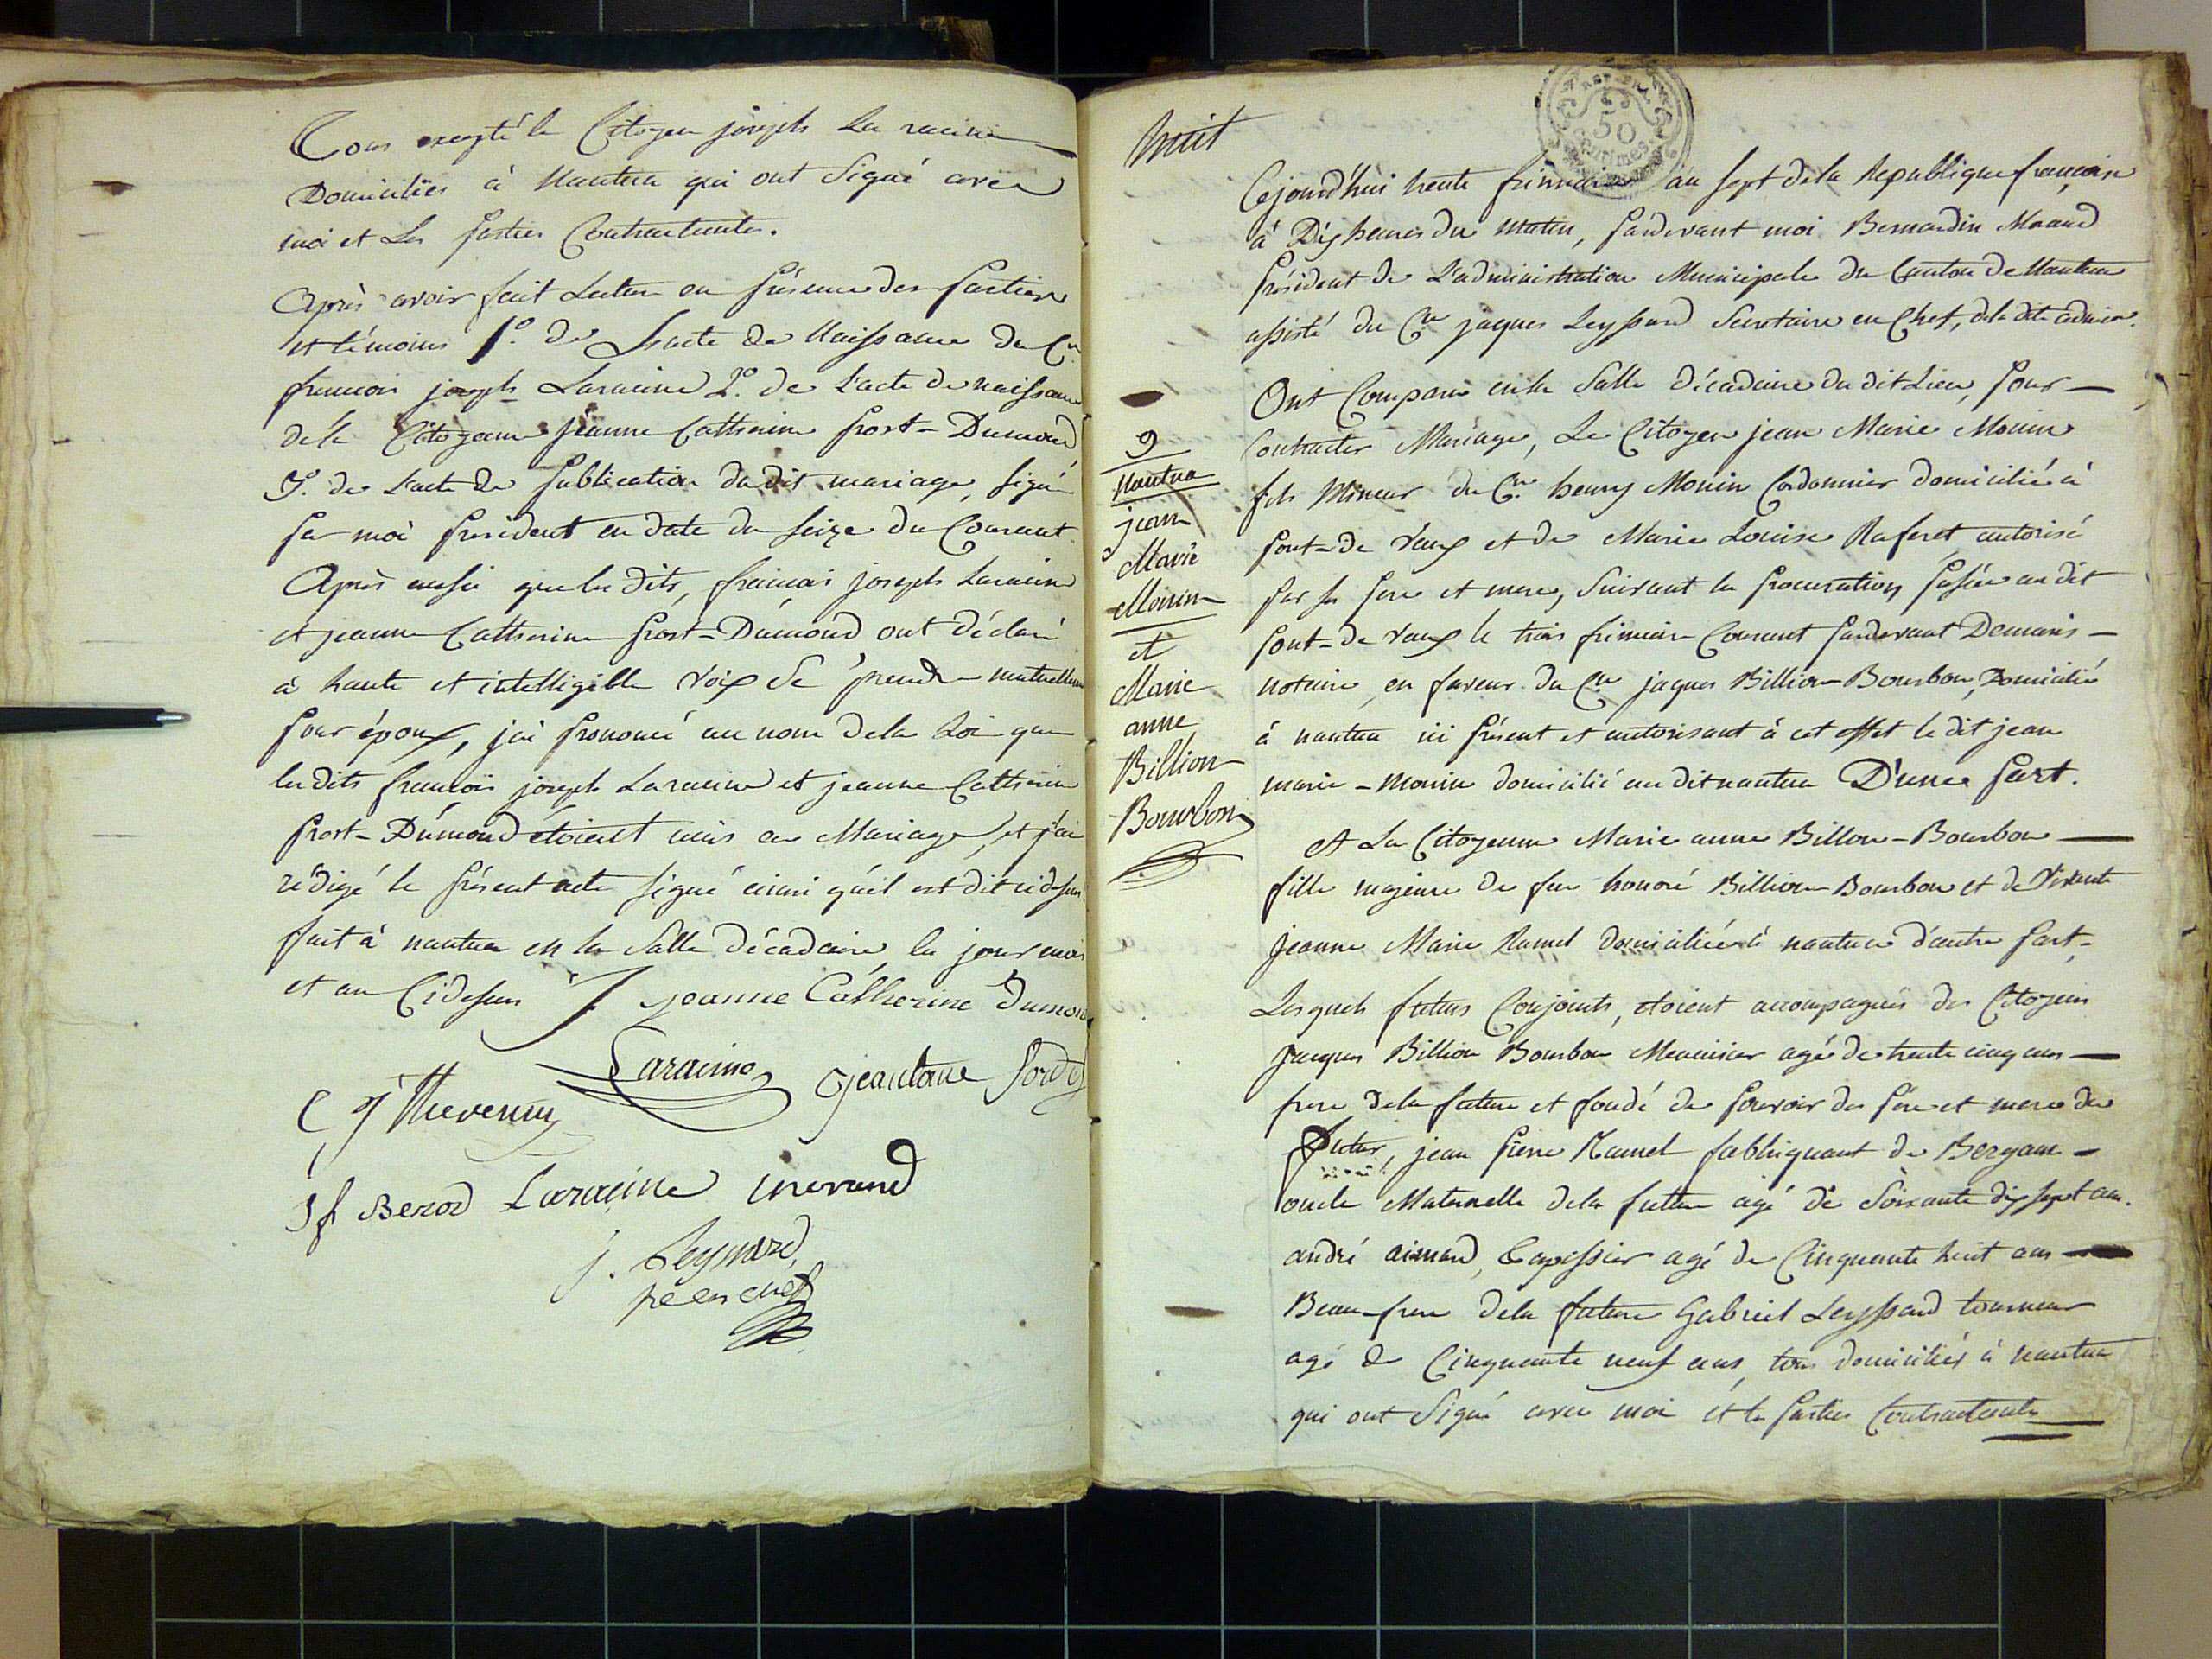 Tous exepté le Citoyen joseph La racine
Domiciliés à Nantua qui ont Signé avec
moi et Les parties Contractantes.
Après avoir fait Lecture en présence des parties
et témoins 1.º de L'acte de Naissance du Cn
francois joseph Laracine 2.º de L'acte de naissance
de la Citoyenne jeanne Catherine prost-Dumond
3.º de L'acte de publication du dit mariage, signé
par moi president en date du seize du Courant
Après aussi que les dits, francois joseph Laracine
et jeanne Catherine prost-Dumond ont déclaré
à haute et intelligible voix se prendre mutuellem
pour époux, j'ai prononcé au nom de la Loi que
les dits francois joseph Laracine et jeanne Catherine
prost-Dumond étoient unis en Mariage, et j'ai
rédigé le présent acte signé ainsi qu'il est dit cidessus
fait à nantua en la Salle décadaire, les jour mois
et an Cidessus jeanne Catherine Dumon
Laracine
C j Thevenin
jf Berod Laracine morand
j. Leyssard,
re en chef
huit
50
Centimes
Cejourd'hui trente frimaire an sept de la Republique francoise
à Dix heures du matin, pardevant moi Bernardin Morand
président de L'administration Municipale du Canton de Nantua
assisté du Cn jaques Leyssard Secretaire en Chef, de la dite admion.
Ont Comparu en la Salle décadaire du dit Lieu, pour
Contracter Mariage, Le Citoyen jean Marie Monin
fils Mineur du Cn henry Monin Cordonnier domicilié à
pont-de vaux et de Marie Louise Raferet autorisé
par ses pere et mere, Suivant la procuration passée au dit
pont-de vaux le trois frimaire Courant pardevant Demaris
notaire, en faveur du Cn jaques Billion-Bourbon, Domicilié
à nantua ici présent et autorisant à cet effet le dit jean
marie-monin domicilié au dit nantua D'une part.
et La Citoyenne Marie anne Billon-Bourbon
fille majeure de feu honoré Billion-Bourbon et de vivante
jeanne Marie Ramel domiciliée à nantua d'autre part-
Lesquels futurs Conjoints, etoient accompagnés des Citoyens
jacques Billion Bourbon Menuisier agé de trente cinq ans
frere de la future et fondé de pouvoir des pere et mere du
futur, jean pierre Ramel fabbriquant de Bergam
oncle Maternelle de la future agé de Soixante dix sept ans.
andré aimard, Tapissier agé de Cinquante huit ans
Beau-frere de la future Gabriel Leyssard tourneur
agé de Cinquante neuf ans, tous domiciliés à nantua
qui ont Signé avec moi et les parties Contractantes
9
Nantua
jean
Marie
Monin
et
Marie
anne
Billion
Bourbon